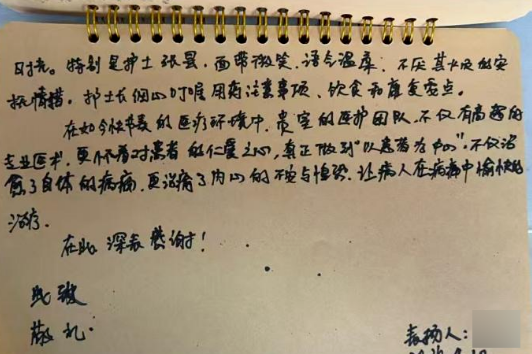 时光。特别是护士张昙,面带微笑、语气温柔、不厌其烦的安
抚情绪。护士长细心叮嘱用药注意事项、饮食和康复要点。
在如今快节奏的医疗环境中,贵室的医护团队,不仅有高超的
专业医术,更怀着对患者的仁爱之心,真正做到"以患者为中心",不仅治
愈了身体的病痛,更治愈了内心的不安与惶恐,让病人在病痛中愉快的
治疗。
在此深表感谢!
此致
敬礼
表扬人: